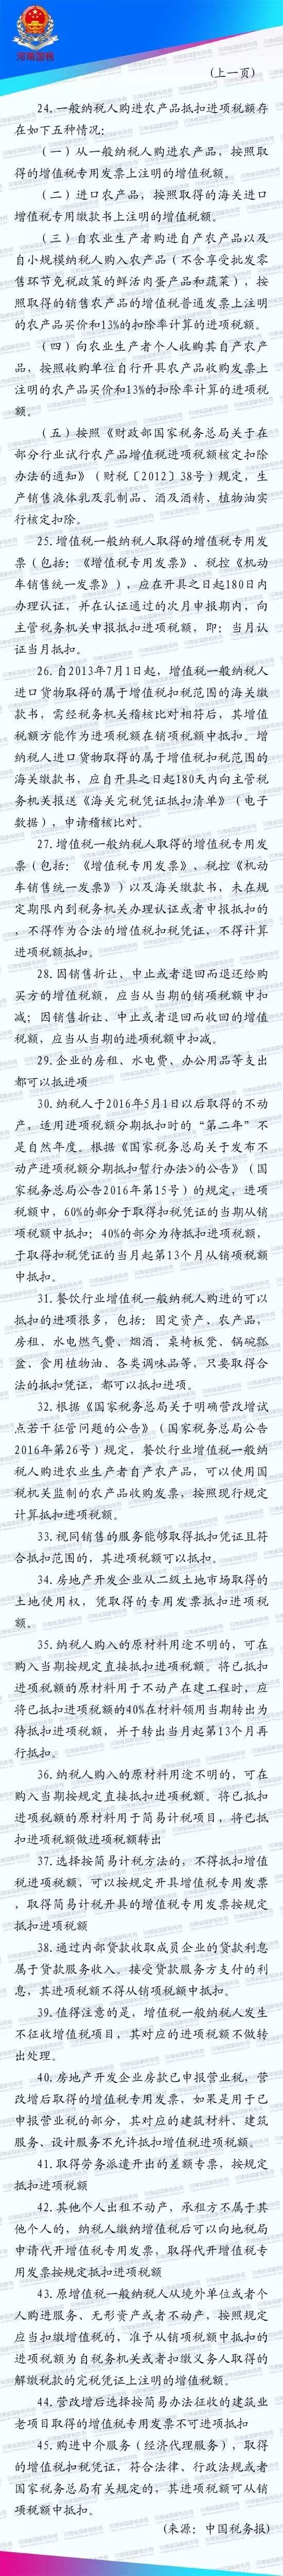 河南国税
(上一页)
24.一般纳税人购进农产品抵扣进项税额存
在如下五种情况：
（一）从一般纳税人购进农产品，按照取
得的增值税专用发票上注明的增值税额。
（二）进口农产品，按照取得的海关进口
增值税专用缴款书上注明的增值税额。
（三）自农业生产者购进自产农产品以及
自小规模纳税人购入农产品（不含享受批发零
售环节免税政策的鲜活肉蛋产品和蔬菜），按
照取得的销售农产品的增值税普通发票上注明
的农产品买价和13%的扣除率计算的进项税额。
（四）向农业生产者个人收购其自产农产
品，按照收购单位自行开具农产品收购发票上
注明的农产品买价和13%的扣除率计算的进项税
额。
（五）按照《财政部国家税务总局关于在
部分行业试行农产品增值税进项税额核定扣除
办法的通知》（财税〔2012〕38号）规定，生
产销售液体乳及乳制品、酒及酒精、植物油实
行核定扣除。
25.增值税一般纳税人取得的增值税专用发
票（包括：《增值税专用发票》、税控《机动
车销售统一发票》），应在开具之日起180日内
办理认证，并在认证通过的次月申报期内，向
主管税务机关申报抵扣进项税额，即：当月认
证当月抵扣。
26.自2013年7月1日起，增值税一般纳税人
进口货物取得的属于增值税扣税范围的海关缴
款书，需经税务机关稽核比对相符后，其增值
税额方能作为进项税额在销项税额中抵扣。增
值税人进口货物取得的属于增值税扣税范围的
海关缴款书，应自开具之日起180天内向主管税
务机关报送《海关完税凭证抵扣清单》（电子
数据），申请稽核比对。
27.增值税一般纳税人取得的增值税专用发
票（包括：《增值税专用发票》、税控《机动
车销售统一发票》）以及海关缴款书，未在规
定期限内到税务机关办理认证或者申报抵扣的
，不得作为合法的增值税扣税凭证，不得计算
进项税额抵扣。
28.因销售折让、中止或者退回而退还给购
买方的增值税额，应当从当期的销项税额中扣
减；因销售折让、中止或者退回而收回的增值
税额，应当从当期的进项税额中扣减。
29.企业的房租、水电费、办公用品等支出
都可以抵进项
30.纳税人于2016年5月1日以后取得的不动
产，适用进项税额分期抵扣时的“第二年”不
是自然年度。根据《国家税务总局关于发布不
动产进项税额分期抵扣暂行办法>的公告》（国
家税务总局公告2016年第15号）的规定，进项
税额中，60%的部分于取得扣税凭证的当期从销
项税额中抵扣；40%的部分为待抵扣进项税额，
于取得扣税凭证的当月起第13个月从销项税额
中抵扣。
31.餐饮行业增值税一般纳税人购进的可以
抵扣的进项很多，包括：固定资产、农产品，
房租、水电燃气费、烟酒、桌椅板凳、锅碗瓢
盆、食用植物油、各类调味品等，只要取得合
法的抵扣凭证，都可以抵扣进项。
32.根据《国家税务总局关于明确营改增试
点若干征管问题的公告》（国家税务总局公告
2016年第26号）规定，餐饮行业增值税一般纳
税人购进农业生产者自产农产品，可以使用国
税机关监制的农产品收购发票，按照现行规定
计算抵扣进项税额。
33.视同销售的服务能够取得抵扣凭证且符
合抵扣范围的，其进项税额可以抵扣。
34.房地产开发企业从二级土地市场取得的
土地使用权，凭取得的专用发票抵扣进项税
额。
35.纳税人购入的原材料用途不明的，可在
购入当期按规定直接抵扣进项税额。将已抵扣
进项税额的原材料用于不动产在建工程时，应
将已抵扣进项税额的40%在材料领用当期转出为
待抵扣进项税额，并于转出当月起第13个月再
行抵扣。
36.纳税人购入的原材料用途不明的，可在
购入当期按规定直接抵扣进项税额。将已抵扣
进项税额的原材料用于简易计税项目，将已抵
扣进项税额做进项税额转出
37.选择按简易计税方法的，不得抵扣增值
税进项税额，可以按规定开具增值税专用发票
，取得简易计税开具的增值税专用发票按规定
抵扣进项税额
38.通过内部贷款收取成员企业的贷款利息
属于贷款服务收入。接受贷款服务方支付的利
息，其进项税额不得从销项税额中抵扣。
39.值得注意的是，增值税一般纳税人发生
不征收增值税项目，其对应的进项税额不做转
出处理。
40.房地产开发企业房款已申报营业税，营
改增后取得的增值税专用发票，如果是用于已
申报营业税的部分，其对应的建筑材料、建筑
服务、设计服务不允许抵扣增值税进项税额。
41.取得劳务派遣开出的差额专票，按规定
抵扣进项税额
42.其他个人出租不动产，承租方不属于其
他个人的，纳税人缴纳增值税后可以向地税局
申请代开增值税专用发票，取得代开增值税专
用发票按规定抵扣进项税额
43.原增值税一般纳税人从境外单位或者个
人购进服务、无形资产或者不动产，按照规定
应当扣缴增值税的，准予从销项税额中抵扣的
进项税额为自税务机关或者扣缴义务人取得的
解缴税款的完税凭证上注明的增值税额。
44.营改增后选择按简易办法征收的建筑业
老项目取得的增值税专用发票不可进项抵扣
45.购进中介服务（经济代理服务），取得
的增值税扣税凭证，符合法律、行政法规或者
国家税务总局有关规定的，其进项税额可从销
项税额中抵扣。
(来源：中国税务报)